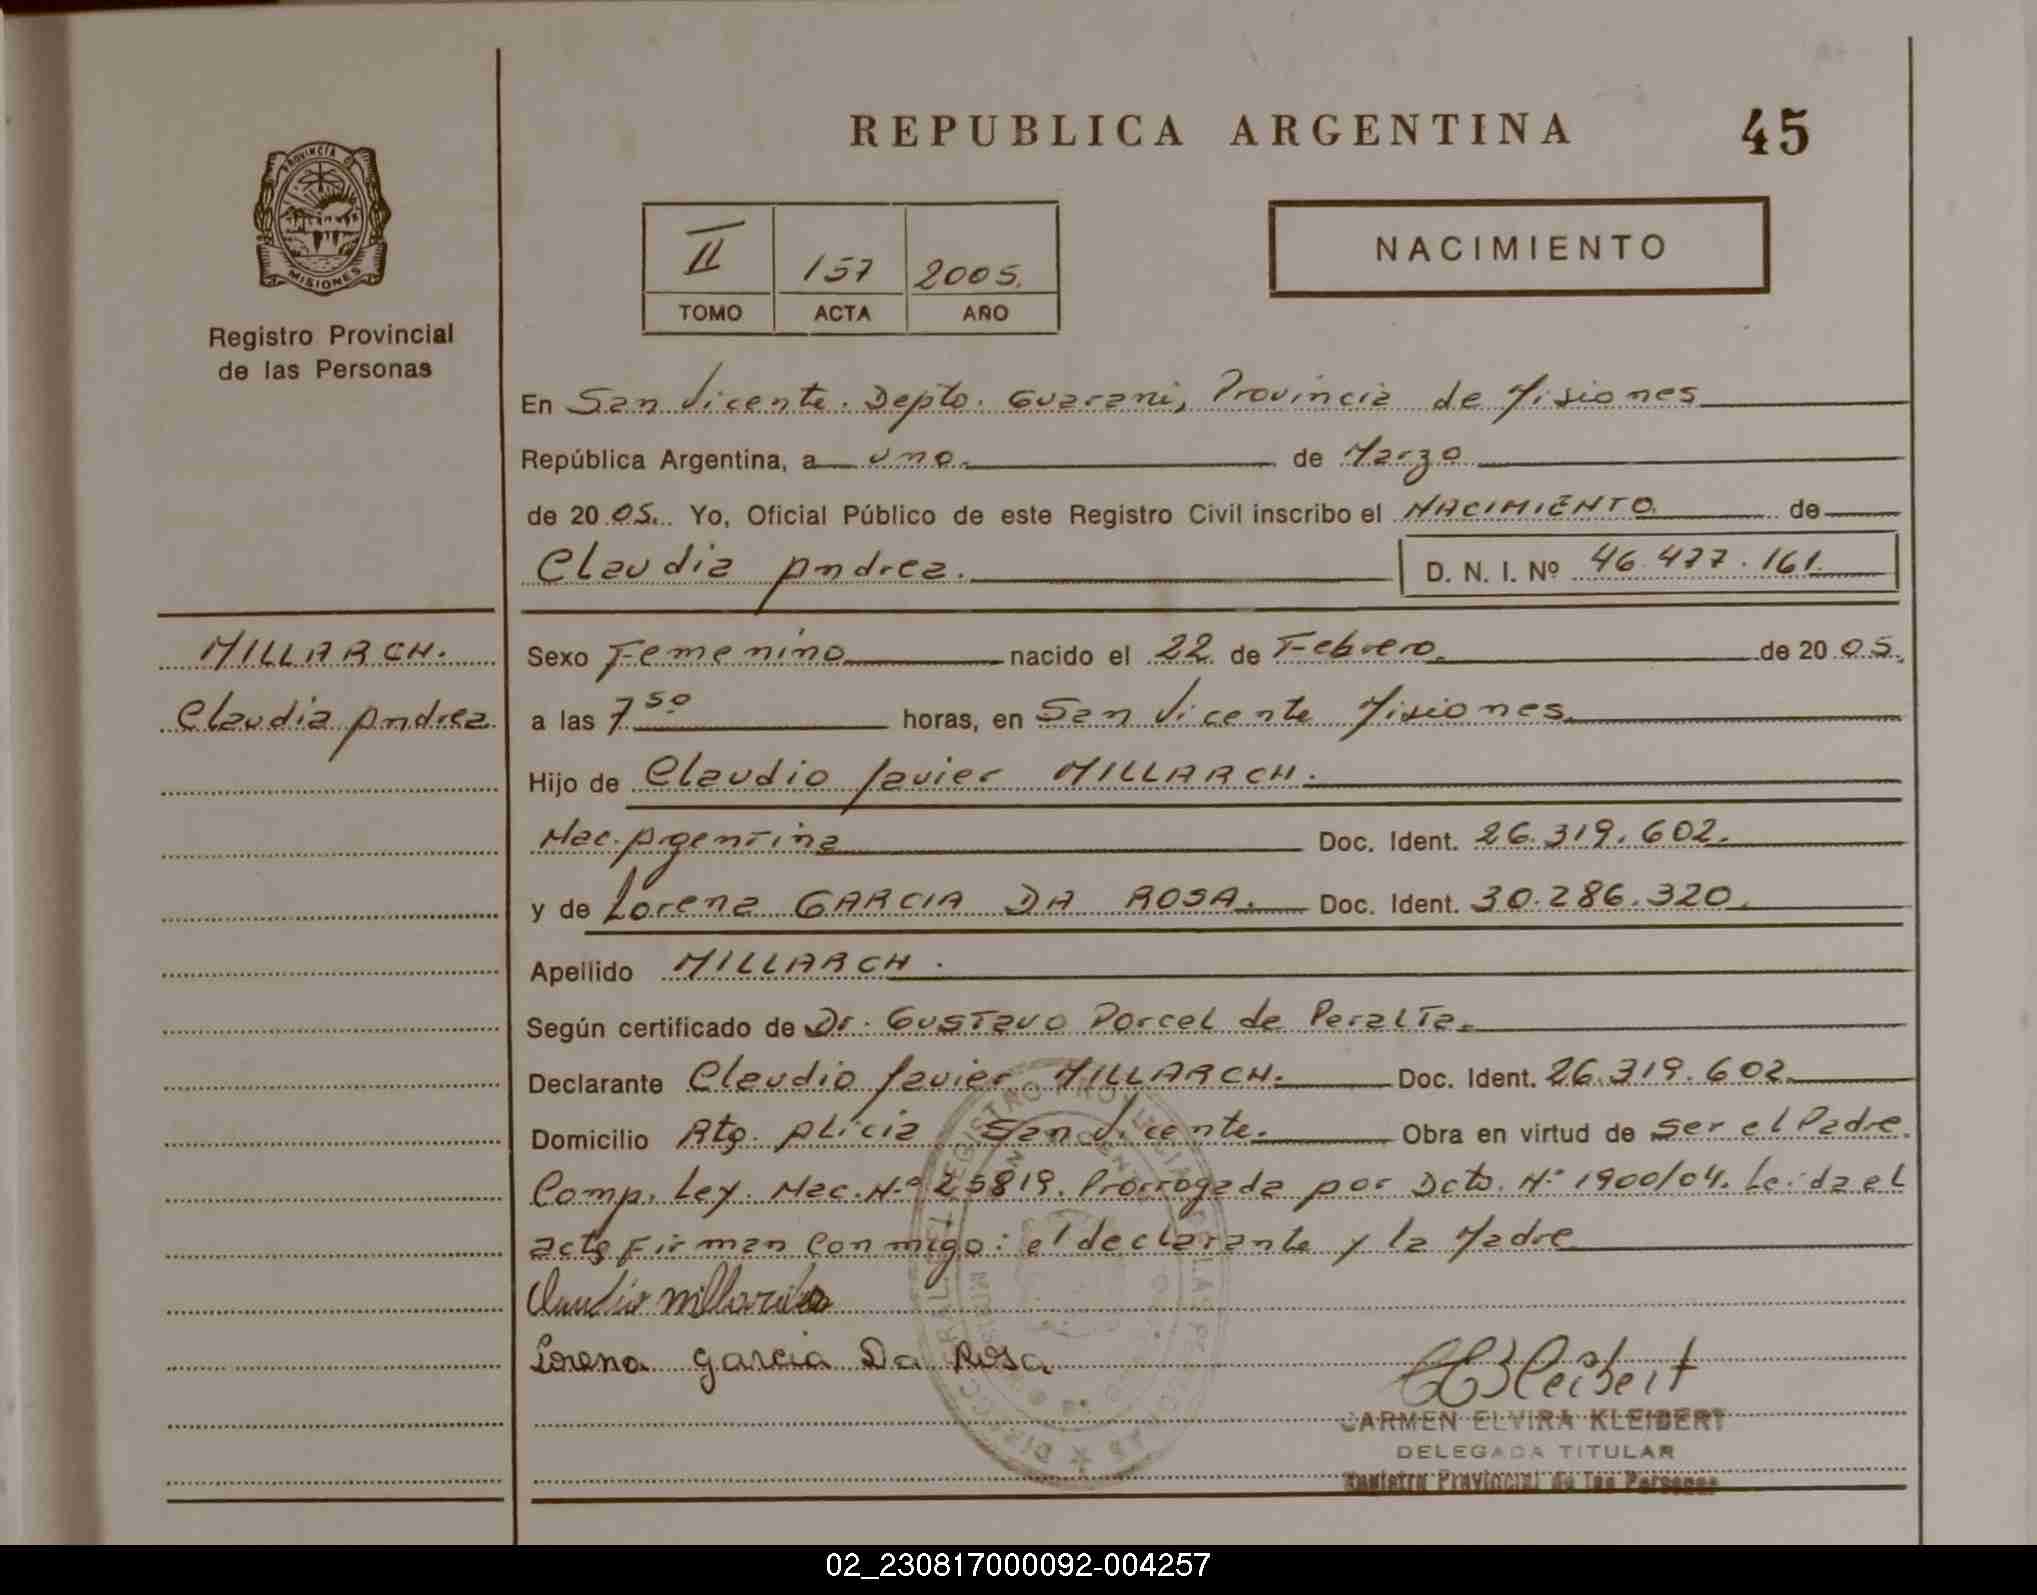 REPUBLICA ARGENTINA
45
PROVINCIA DE
MISIONES
Registro Provincial
de las Personas
II 157 2005.
TOMO ACTA AÑO
NACIMIENTO
En San Vicente. Depto. Guarani, Provincia de Misiones
República Argentina, a uno. de Marzo
de 20 05. Yo, Oficial Público de este Registro Civil inscribo el NACIMIENTO de
Claudia Andrea.
D. N. I. Nº 46.477.161.
MILLARCH.
Claudia Andrea.
Sexo Femenino nacido el 22 de Febrero. de 20 05.
a las 7 50 horas, en San Vicente Misiones.
Hijo de Claudio Javier MILLARCH.
Nac. Argentina Doc. Ident. 26.319.602.
y de Lorena GARCIA DA ROSA. Doc. Ident. 30.286.320.
Apellido MILLARCH.
Según certificado de Dr. Gustavo Porcel de Peralta.
Declarante Claudio Javier MILLARCH. Doc. Ident. 26.319.602.
Domicilio Alicia San Vicente. Obra en virtud de ser el Padre.
Comp. Ley. Nac. N.º 25819. Prorrogada por Dcto. N.º 1900/04. Leida el
acta firman conmigo: el declarante y la Madre
Claudio Millarch
Lorena Garcia Da Rosa
CARMEN ELVIRA KLEIBERT
DELEGADA TITULAR
Registro Provincial de las Personas
02_230817000092-004257